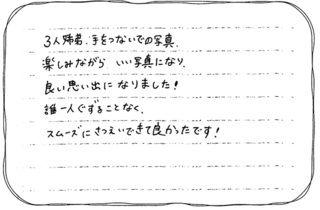 3人姉弟、手をつないでの写真。
楽しみながら いい写真になり、
良い思い出に なりました!
誰一人ぐずることなく、
スムーズにさつえいできて良かったです!